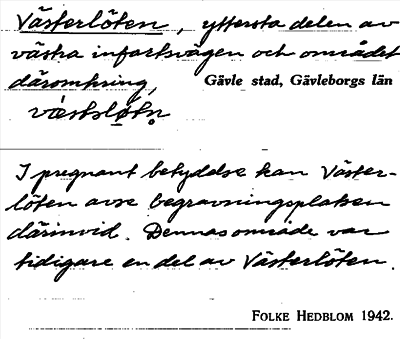 Västerlöten, yttersta delen av
västra infartsvägen och området
däromkring,
Gävle stad, Gävleborgs län
I pregnant betydelse kan Väster-
löten avse begravningsplatsen
därinvid. Dennas område var
tidigare en del av Västerlöten.
FOLKE HEDBLOM 1942.